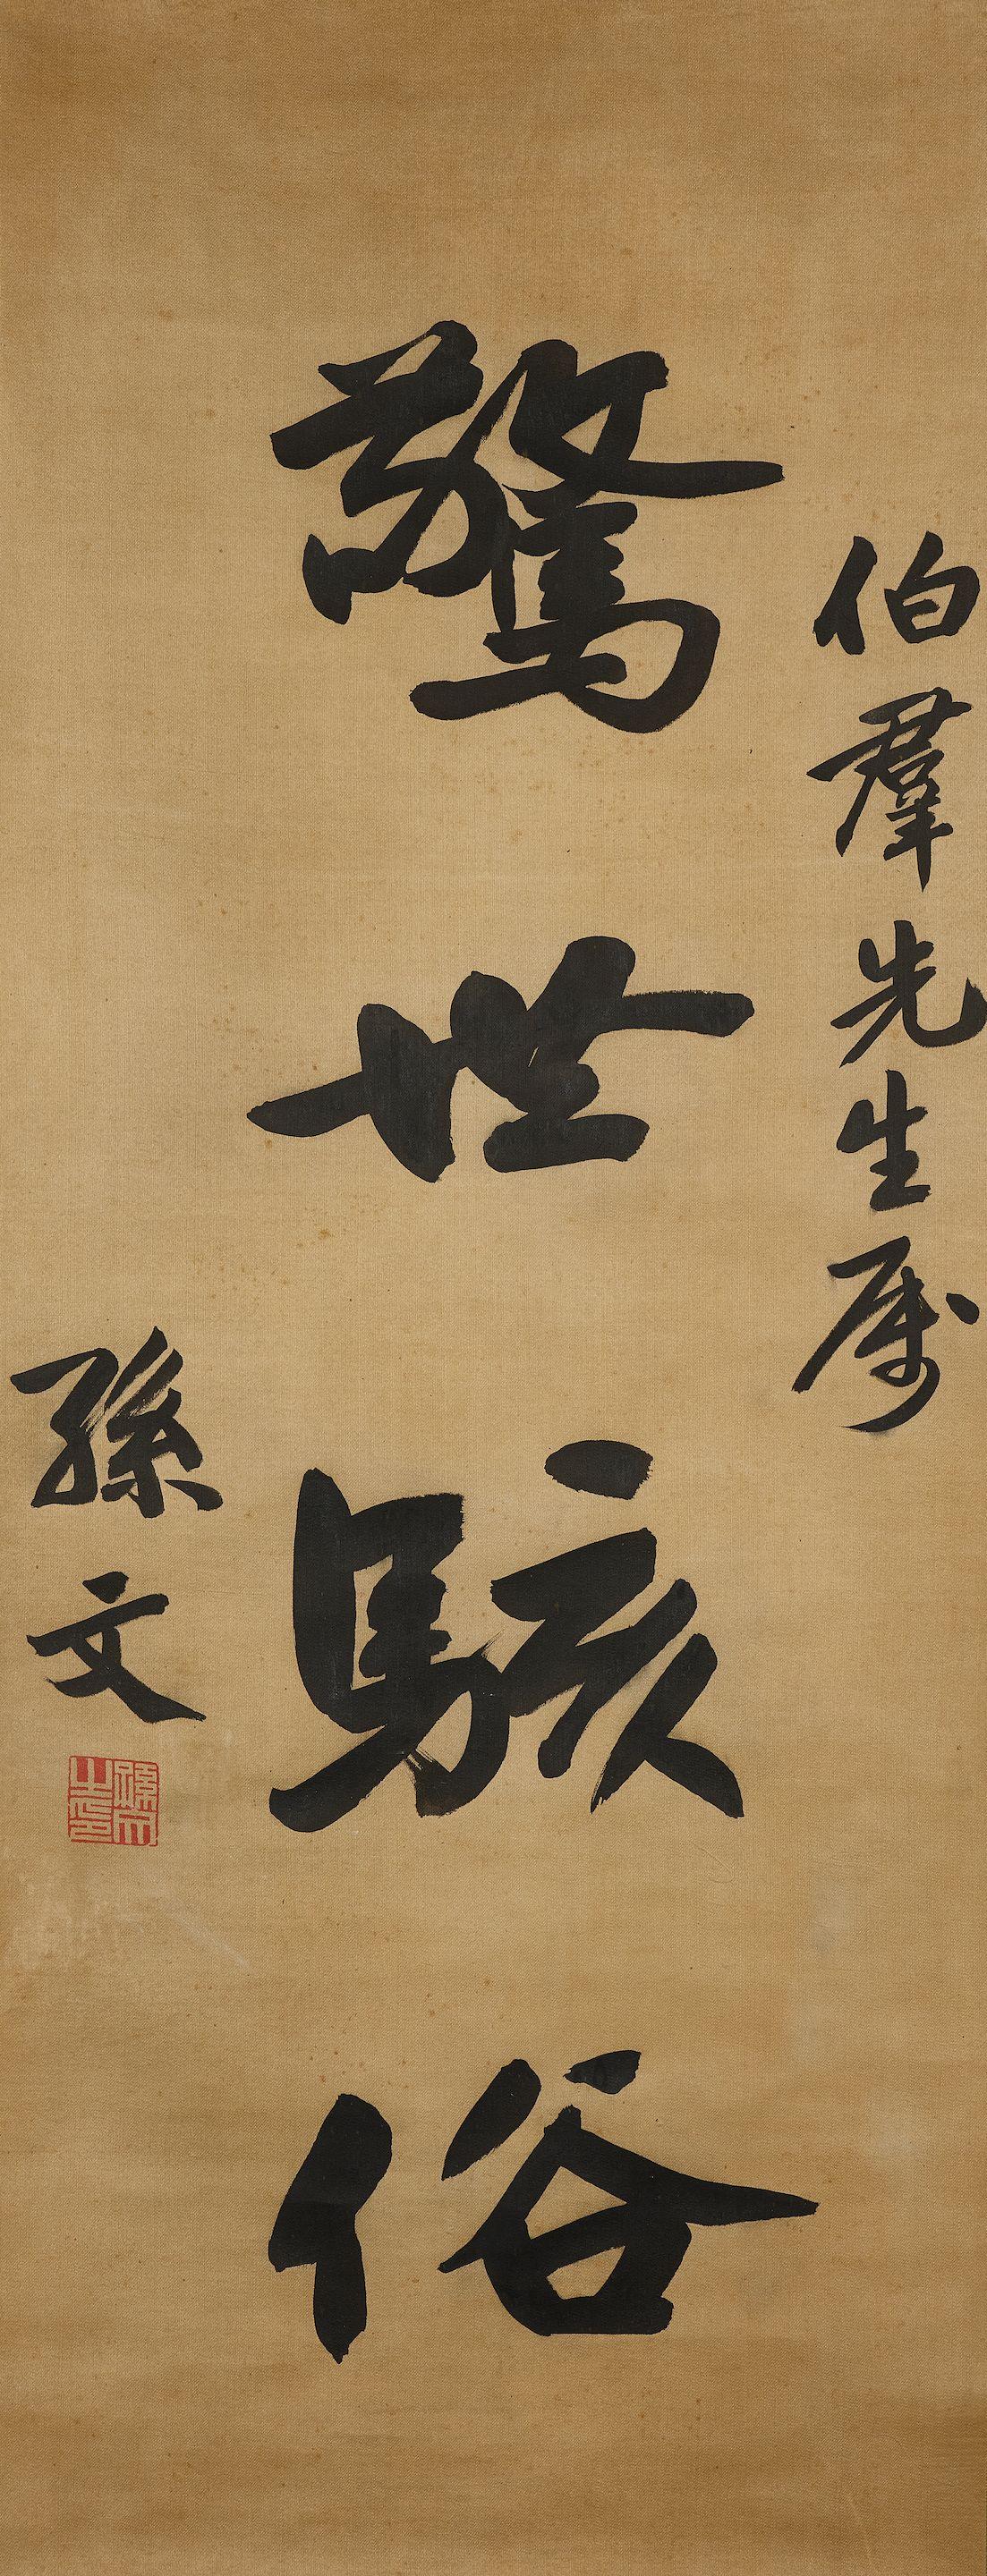 伯羣先生属
驚世駭俗
孫文
孫文之印